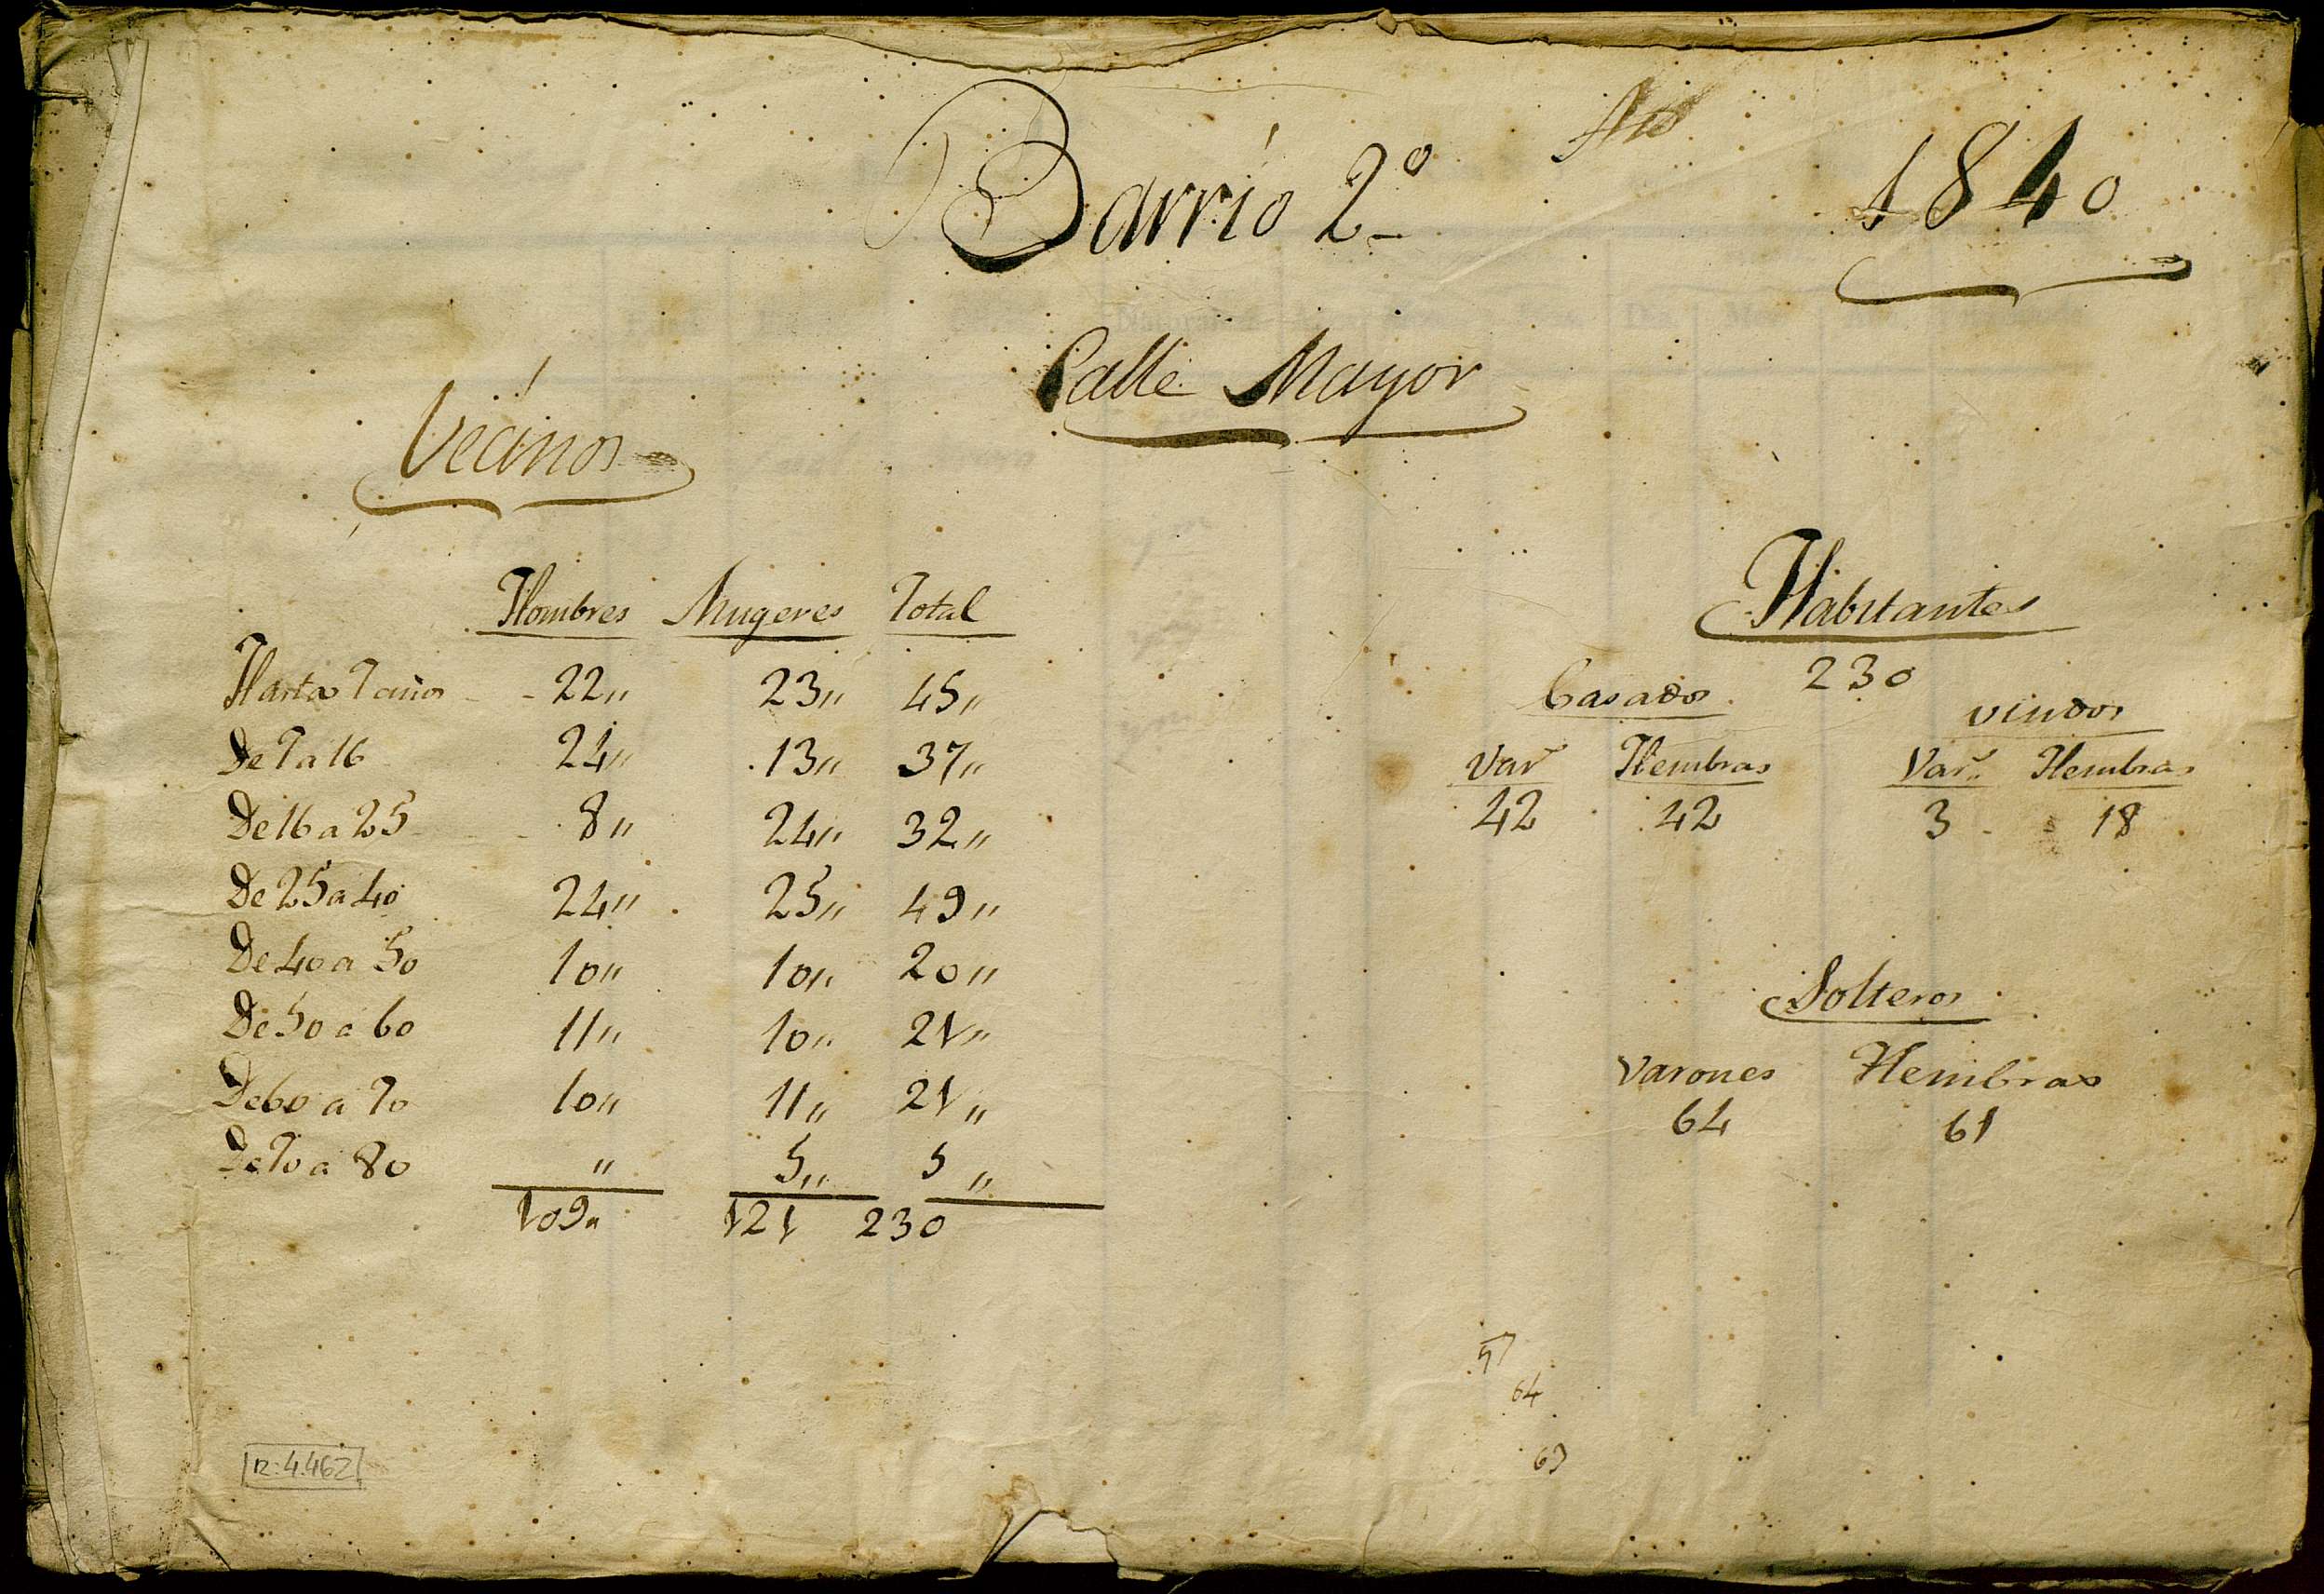 Barrio 2º
Año
1840
Calle Mayor
Vecinos
Hombres Mugeres Total
Hasta 7 años 22,, 23,, 45,,
De 7 a 16 24,, 13,, 37,,
De 16 a 25 8,, 24,, 32,,
De 25 a 40 24,, 25,, 49,,
De 40 a 50 10,, 10,, 20,,
De 50 a 60 11,, 10,, 21,,
De 60 a 70 10,, 11,, 21,,
De 70 a 80 ,, 5,, 5,,
109,, 121 230
Habitantes
230
Casados viudos
Var.^s Hembras Var.^s Hembras
42 42 3 18
Solteros
Varones Hembras
64 61
57
64
63
R: 4.462